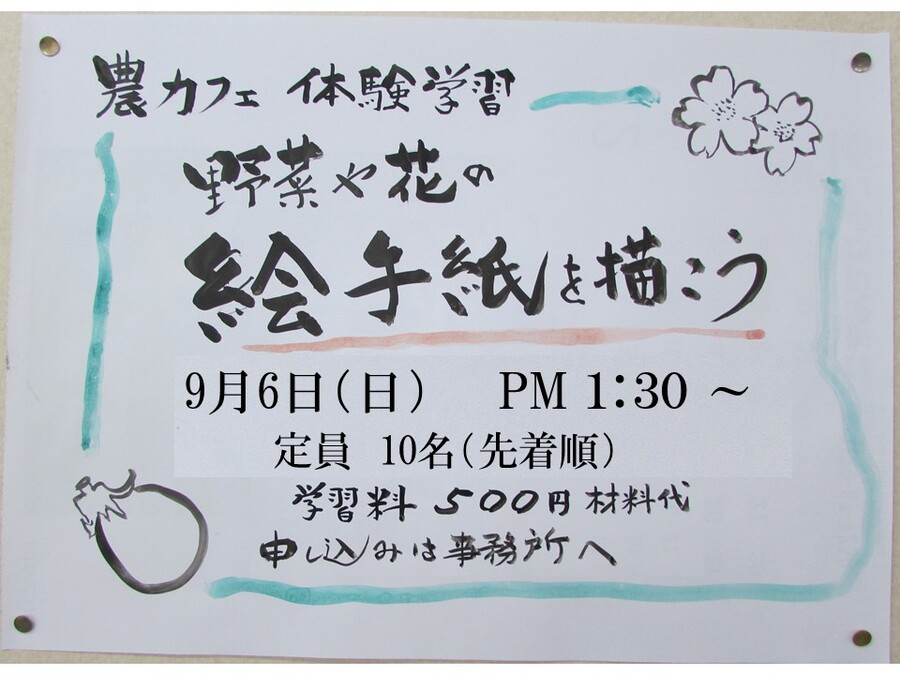 農カフェ 体験学習
野菜や花の
絵手紙を描こう
9月6日(日)　PM 1:30 ～
定員 10名(先着順)
学習料 500円 材料代
申し込みは事務所へ